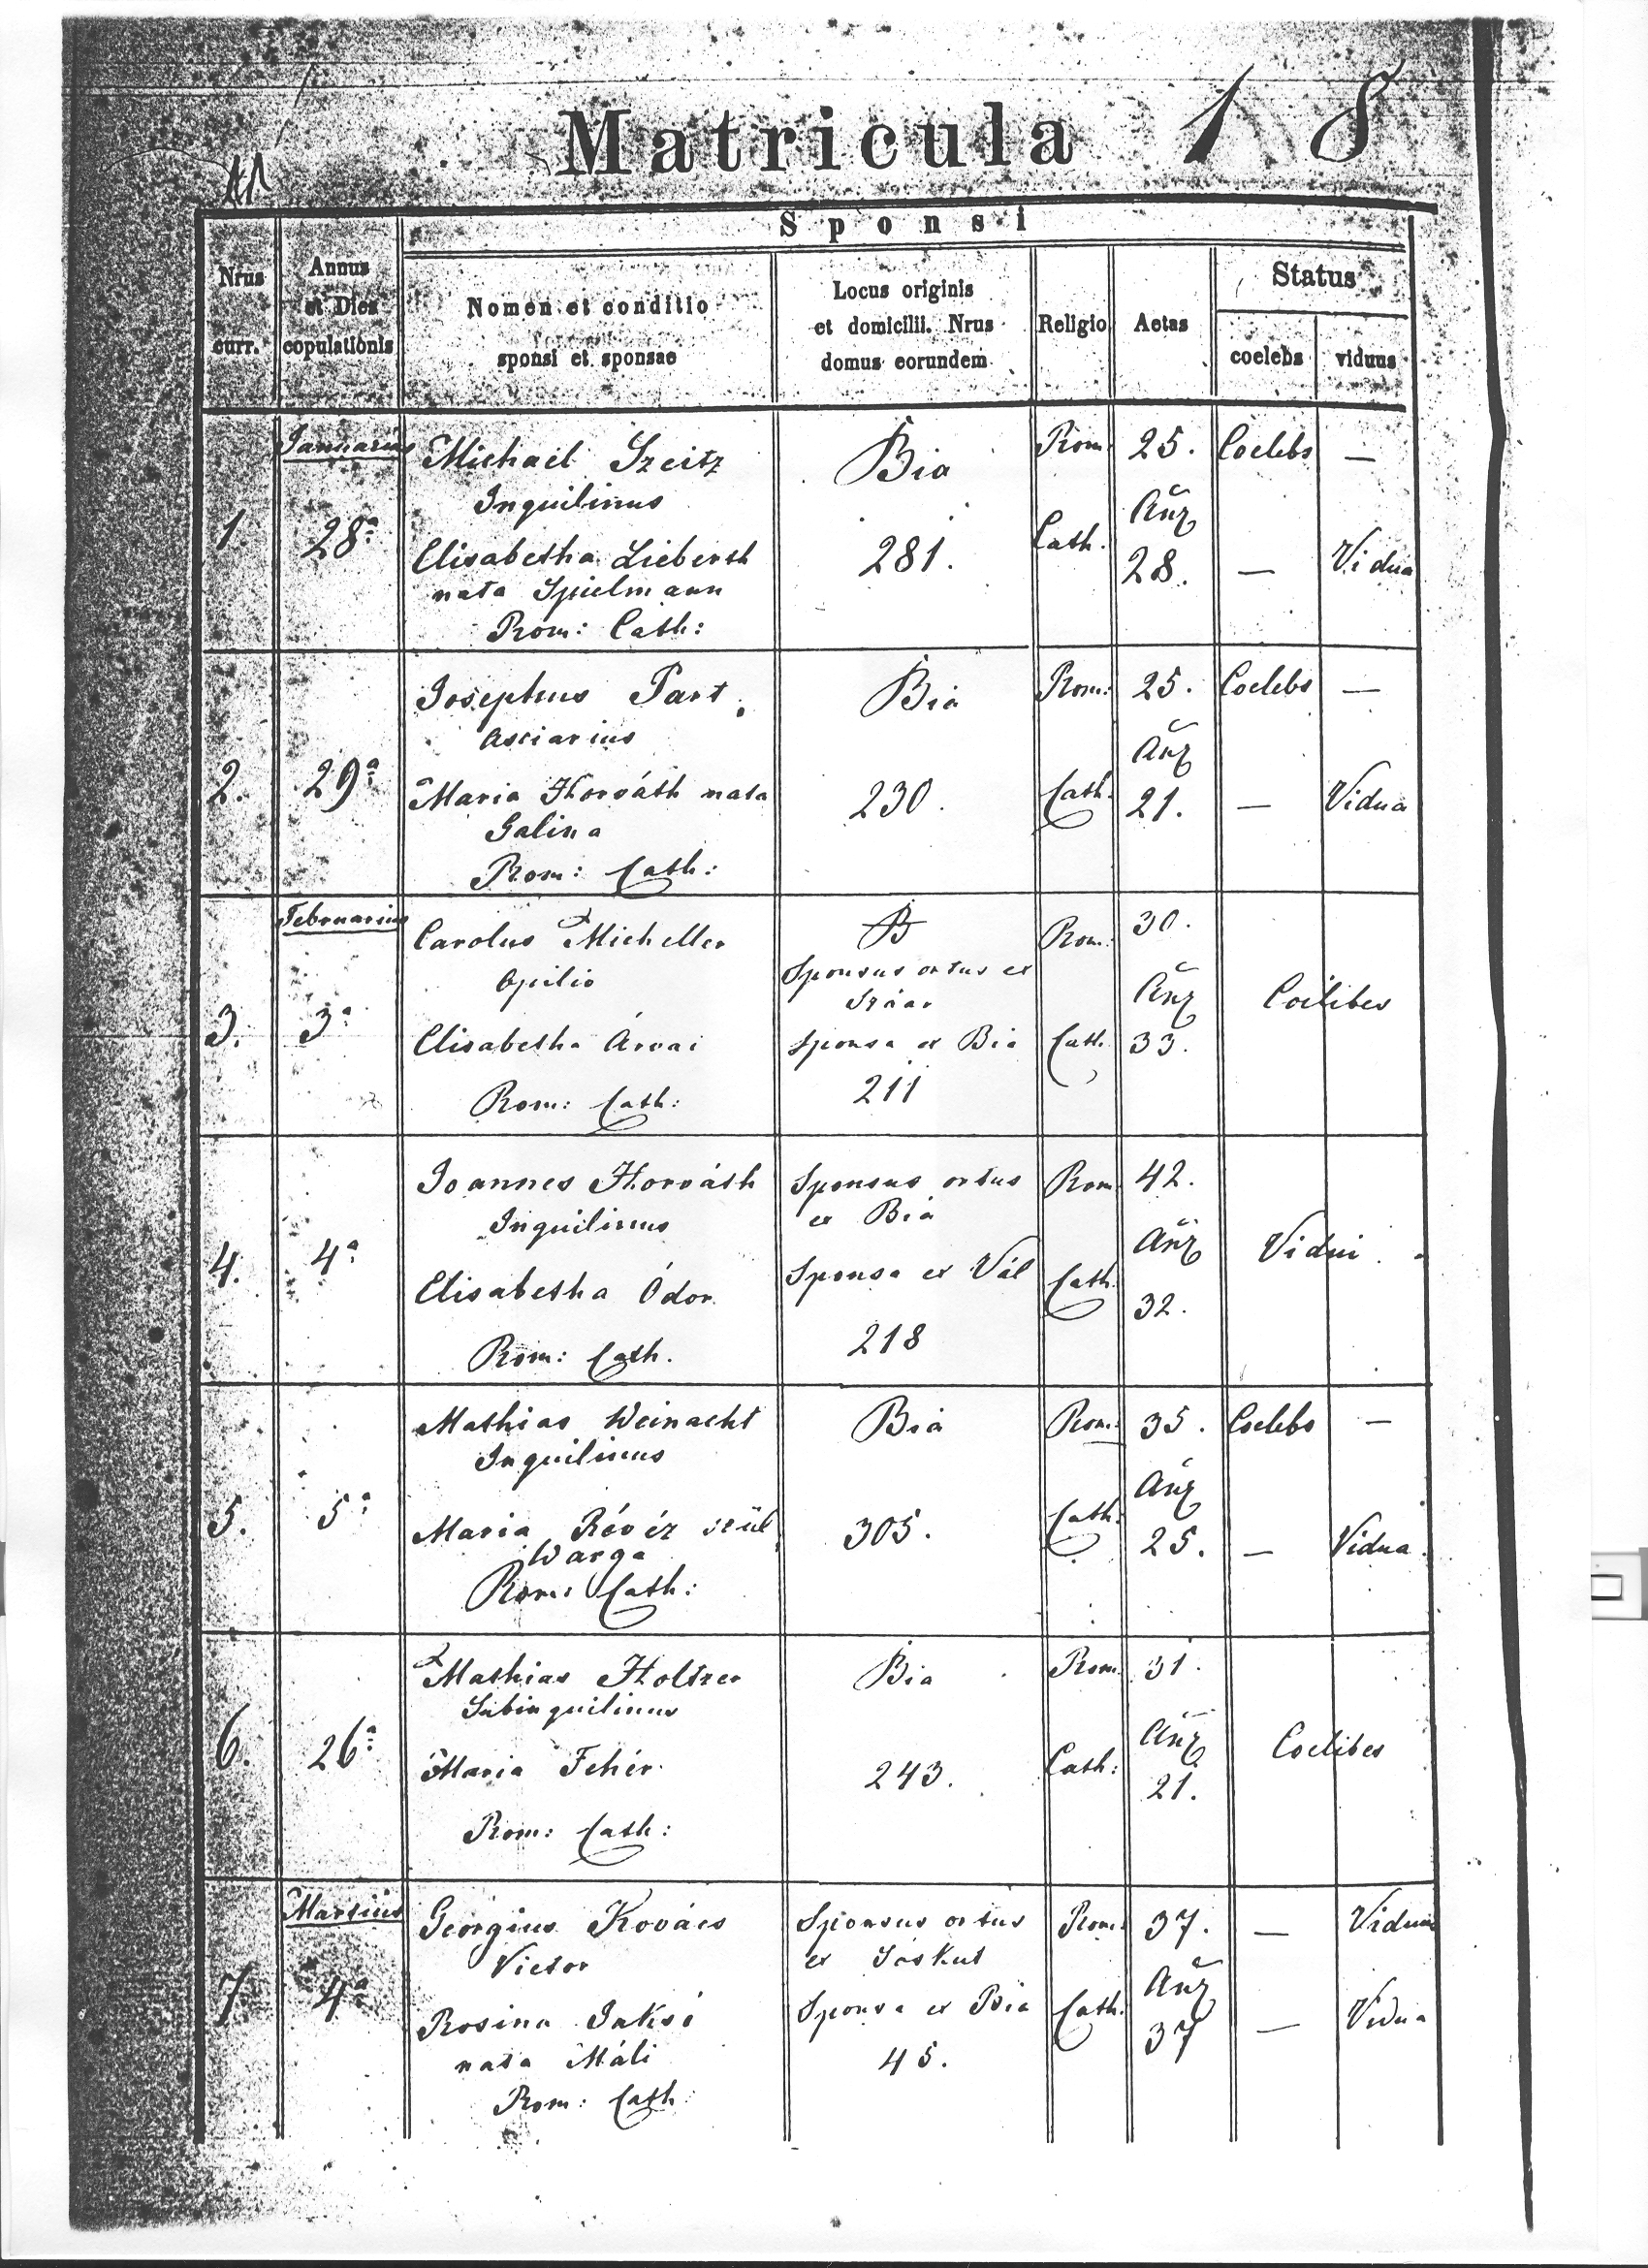 Matricula 18
Sponsi
Nrus curr.
Annus et Dies copulationis
Nomen et conditio sponsi et sponsae
Locus originis et domicilii. Nrus domus eorundem
Religio
Aetas
Status
coelebs
viduus
Januarius
1.
28a
Michael Szeitz
Inquilinus
Elisabetha Liebersh
nata Spielmann
Rom: Cath:
Bia
281.
Rom:
Cath.
25.
Añz
28.
Coelebs
—
—
Vidua
2.
29a
Josephus Part.
Asciarius
Maria Horváth nata
Galina
Rom: Cath:
Bia
230.
Rom:
Cath.
25.
Añz
21.
Coelebs
—
—
Vidua
Februarius
3.
3a
Carolus Micheller
Opilio
Elisabetha Árvai
Rom: Cath:
B
Sponsus ortus ex
Száar
Sponsa ex Bia
211
Rom:
Cath.
30.
Añz
33.
Coelibes
4.
4a
Joannes Horváth
Inquilinus
Elisabetha Ódor
Rom: Cath.
Sponsus ortus
ex Bia
Sponsa ex Vál
218
Rom
Cath.
42.
Añz
32.
Vidui
5.
5a
Mathias Weinacht
Inquilinus
Maria Révéz szül.
Warga
Rom: Cath:
Bia
305.
Rom:
Cath.
35.
Añz
25.
Coelebs
—
—
Vidua
6.
26a
Mathias Holtzer
Subinquilinus
Maria Fehér
Rom: Cath:
Bia
243.
Rom.
Cath:
31.
Añz
21.
Coelibes
Martius
7.
4a
Georgius Kovács
Vietor
Rosina Jaksó
nata Máli
Rom: Cath:
Sponsus ortus
ex Sóskut
Sponsa ex Bia
45.
Rom:
Cath.
37.
Añz
37
—
Viduus
—
Vidua